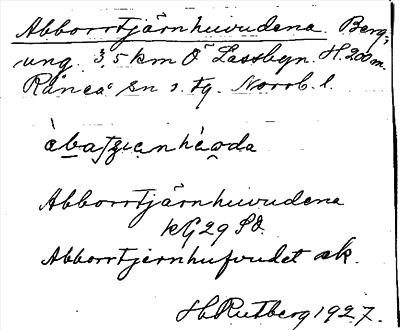 Abborrtjärnhuvudena. Berg,
ung. 3,5 km Ö Lassbyn. H. 200 m.
Råneå sn o. tg. Norrb. l.
Abborrtjärnhuvudena
KG 29 SO.
Abborrtjernhufvudet ek.
H. Rutberg 1927.